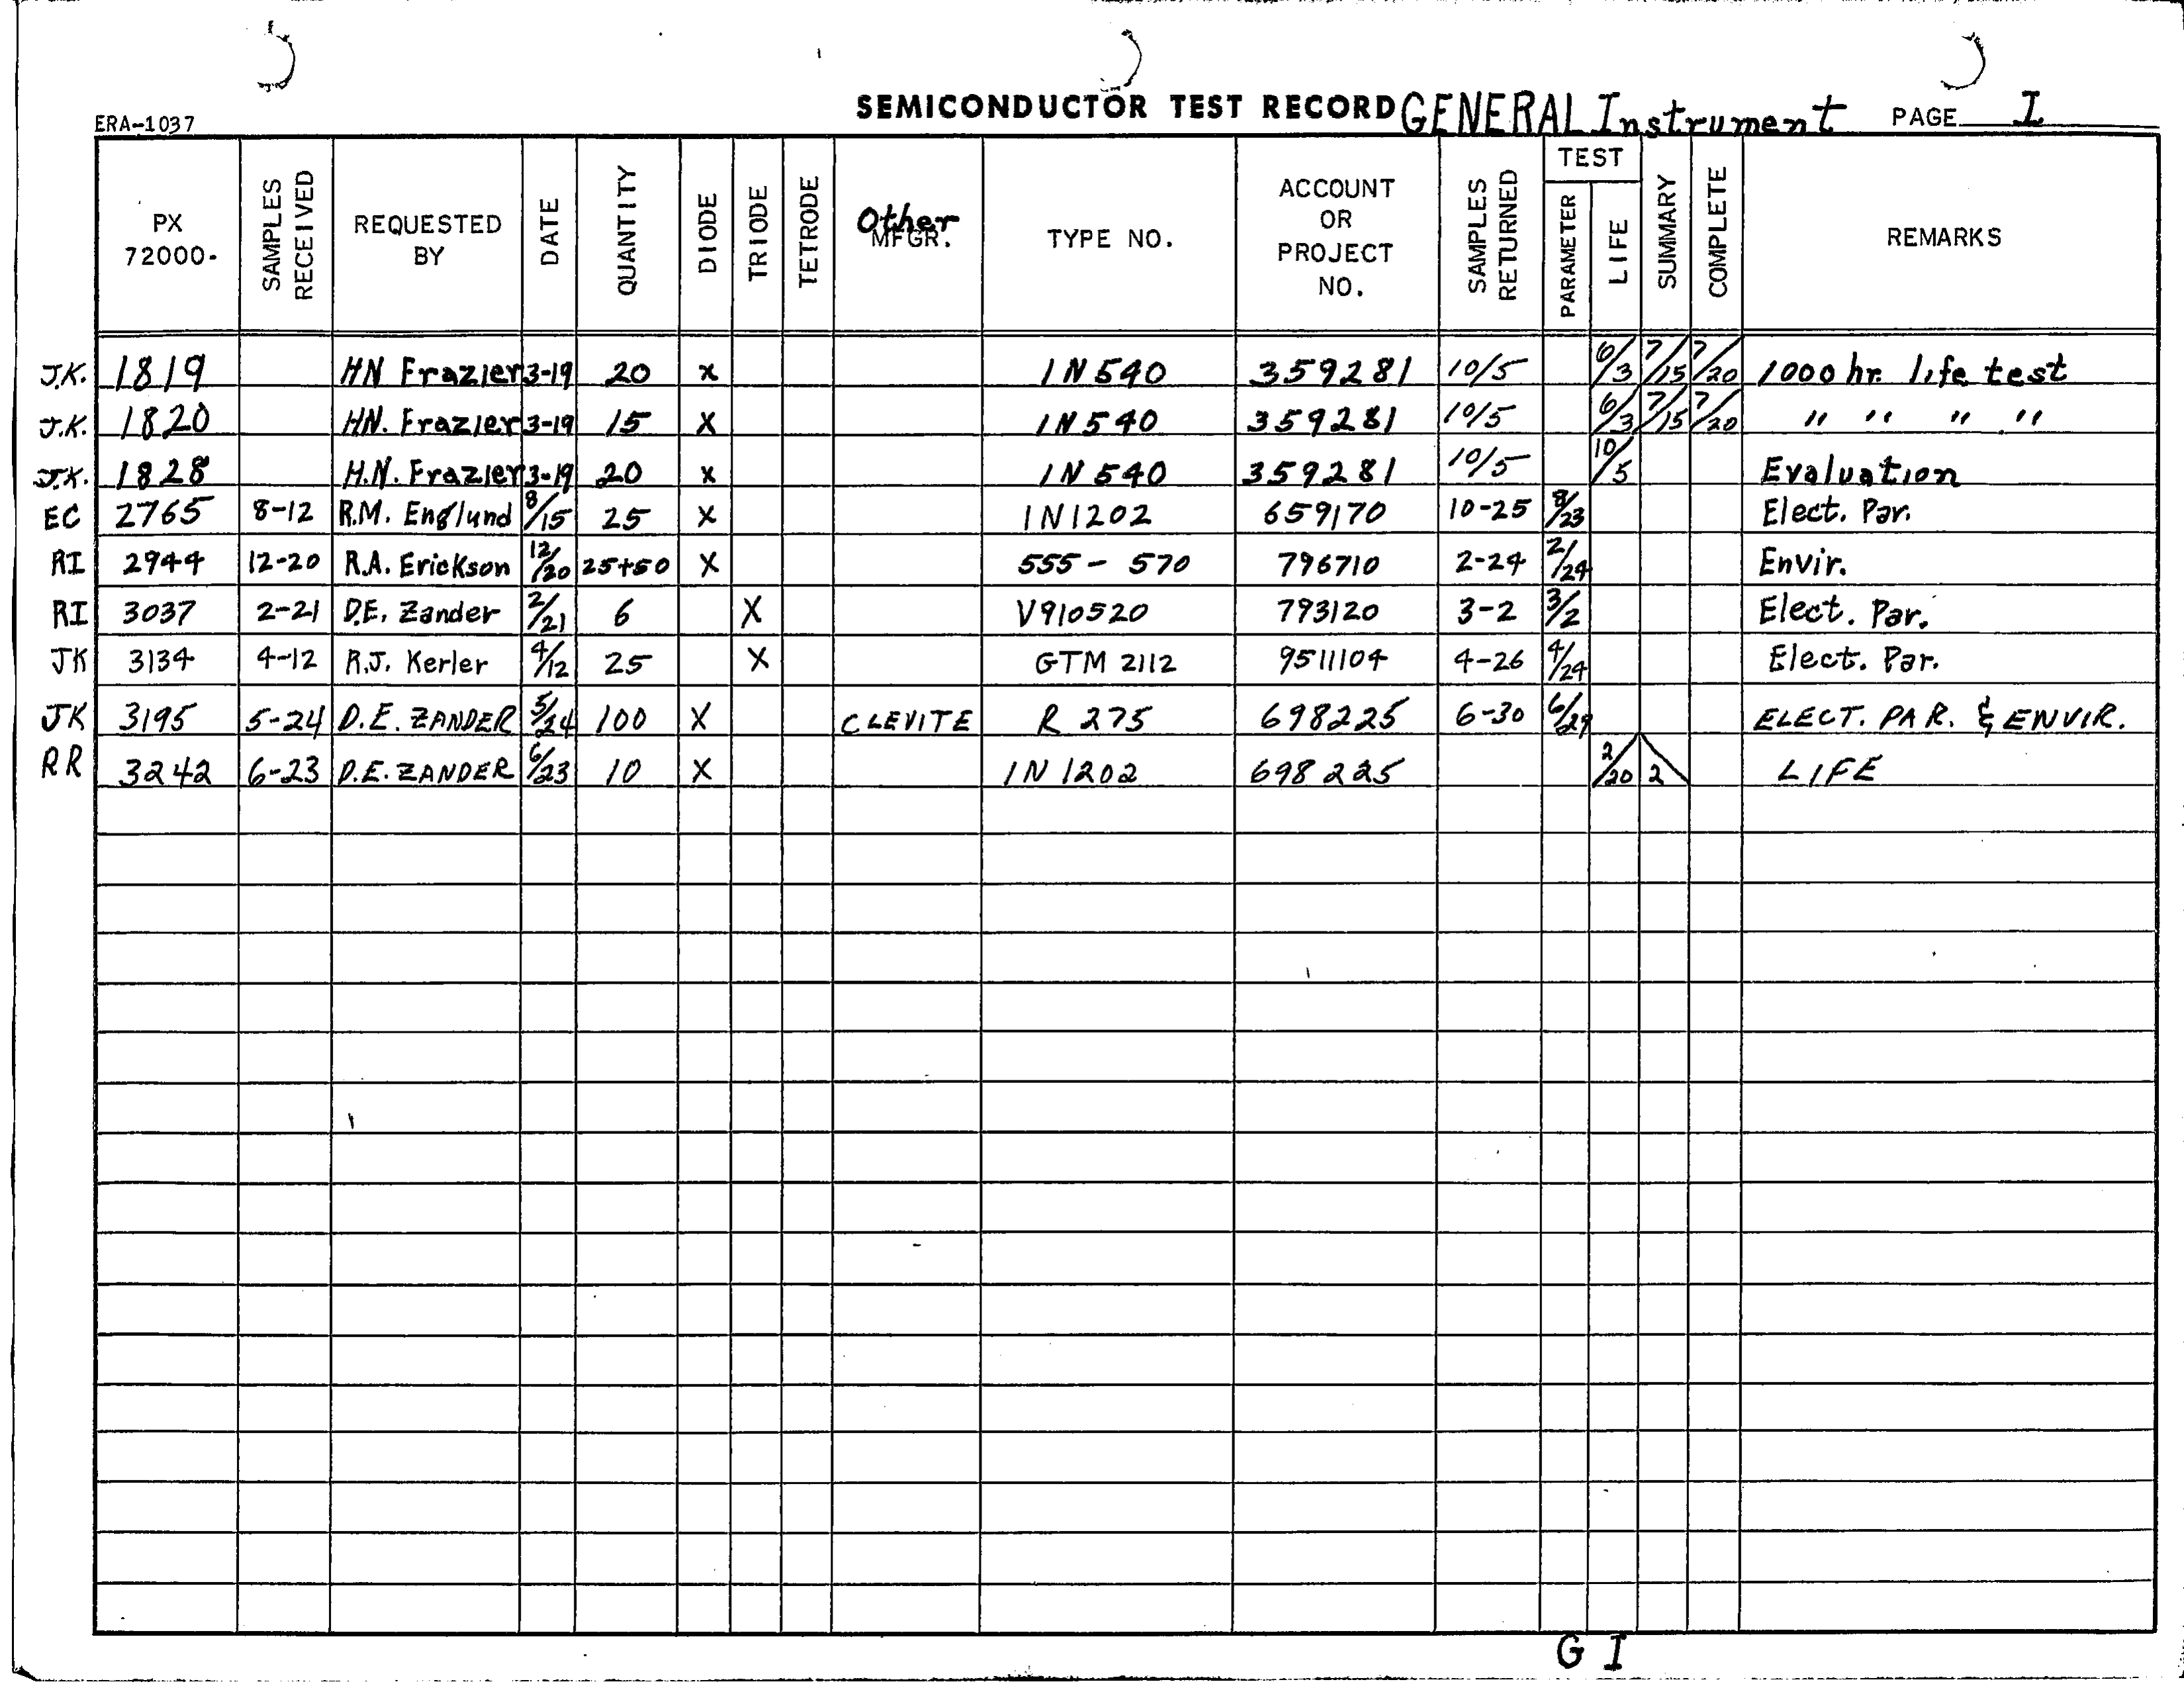 SEMICONDUCTOR TEST RECORD GENERAL Instrument PAGE I
ERA-1037
PX 72000- SAMPLES RECEIVED REQUESTED BY DATE QUANTITY DIODE TRIODE TETRODE Other MFGR. TYPE NO. ACCOUNT OR PROJECT NO. SAMPLES RETURNED TEST PARAMETER LIFE SUMMARY COMPLETE REMARKS
J.K. 1819 HN Frazier 3-19 20 x 1N540 359281 10/5 6/3 7/15 7/20 1000 hr. life test
J.K. 1820 HN. Frazier 3-19 15 X 1N540 359281 10/5 6/3 7/15 7/20 " " " "
J.K. 1828 H.N. Frazier 3-19 20 x 1N540 359281 10/5 10/5 Evaluation
EC 2765 8-12 R.M. Englund 8/15 25 X 1N1202 659170 10-25 8/23 Elect. Par.
RI 2944 12-20 R.A. Erickson 12/20 25+50 X 555- 570 796710 2-24 2/24 Envir.
RI 3037 2-21 D.E. Zander 2/21 6 X V910520 793120 3-2 3/2 Elect. Par.
JK 3134 4-12 R.J. Kerler 4/12 25 X GTM 2112 9511104 4-26 4/24 Elect. Par.
JK 3195 5-24 D.E. ZANDER 5/24 100 X CLEVITE R 275 698225 6-30 6/29 ELECT. PAR. & ENVIR.
RR 3242 6-23 D.E. ZANDER 6/23 10 X 1N 1202 698225 2/20 2 LIFE
G I